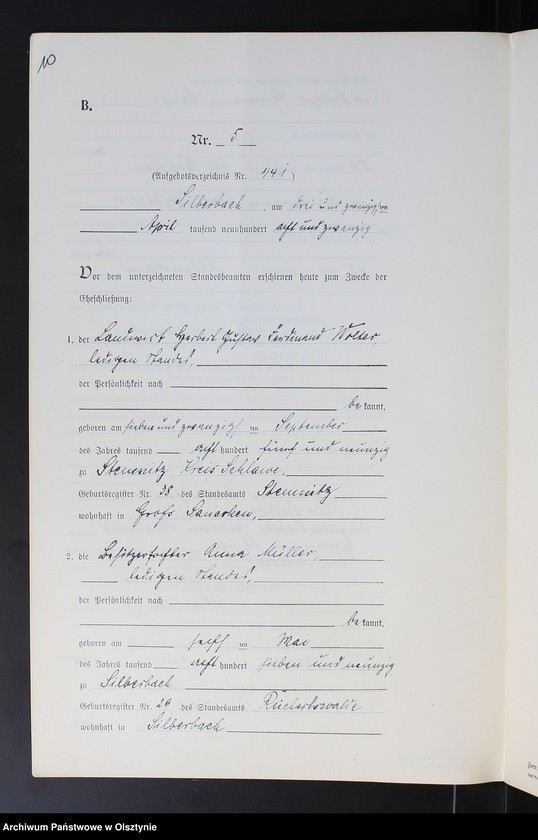 10
B.
Nr. 5
(Aufgebotsverzeichnis Nr. )
Silberbach, am drei und zwanzigsten
April tausend neunhundert acht und zwanzig
Vor dem unterzeichneten Standesbeamten erschienen heute zum Zwecke der
Eheschließung:
1. der Landwirt Herbert Gustav Ferdinand Wolter,
ledigen Standes,
der Persönlichkeit nach
be kannt,
geboren am sieben und zwanzigsten September
des Jahres tausend acht hundert fünf und neunzig
zu Stemnitz Kreis Schlawe,
Geburtsregister Nr. 38 des Standesamts Stemnitz
wohnhaft in Groß Sauerken,
2. die Besitzertochter Anna Müller,
ledigen Standes,
der Persönlichkeit nach
be kannt,
geboren am ten Mai
des Jahres tausend acht hundert sieben und neunzig
zu Silberbach
Geburtsregister Nr. 29 des Standesamts Reichertswalde
wohnhaft in Silberbach
Archiwum Państwowe w Olsztynie